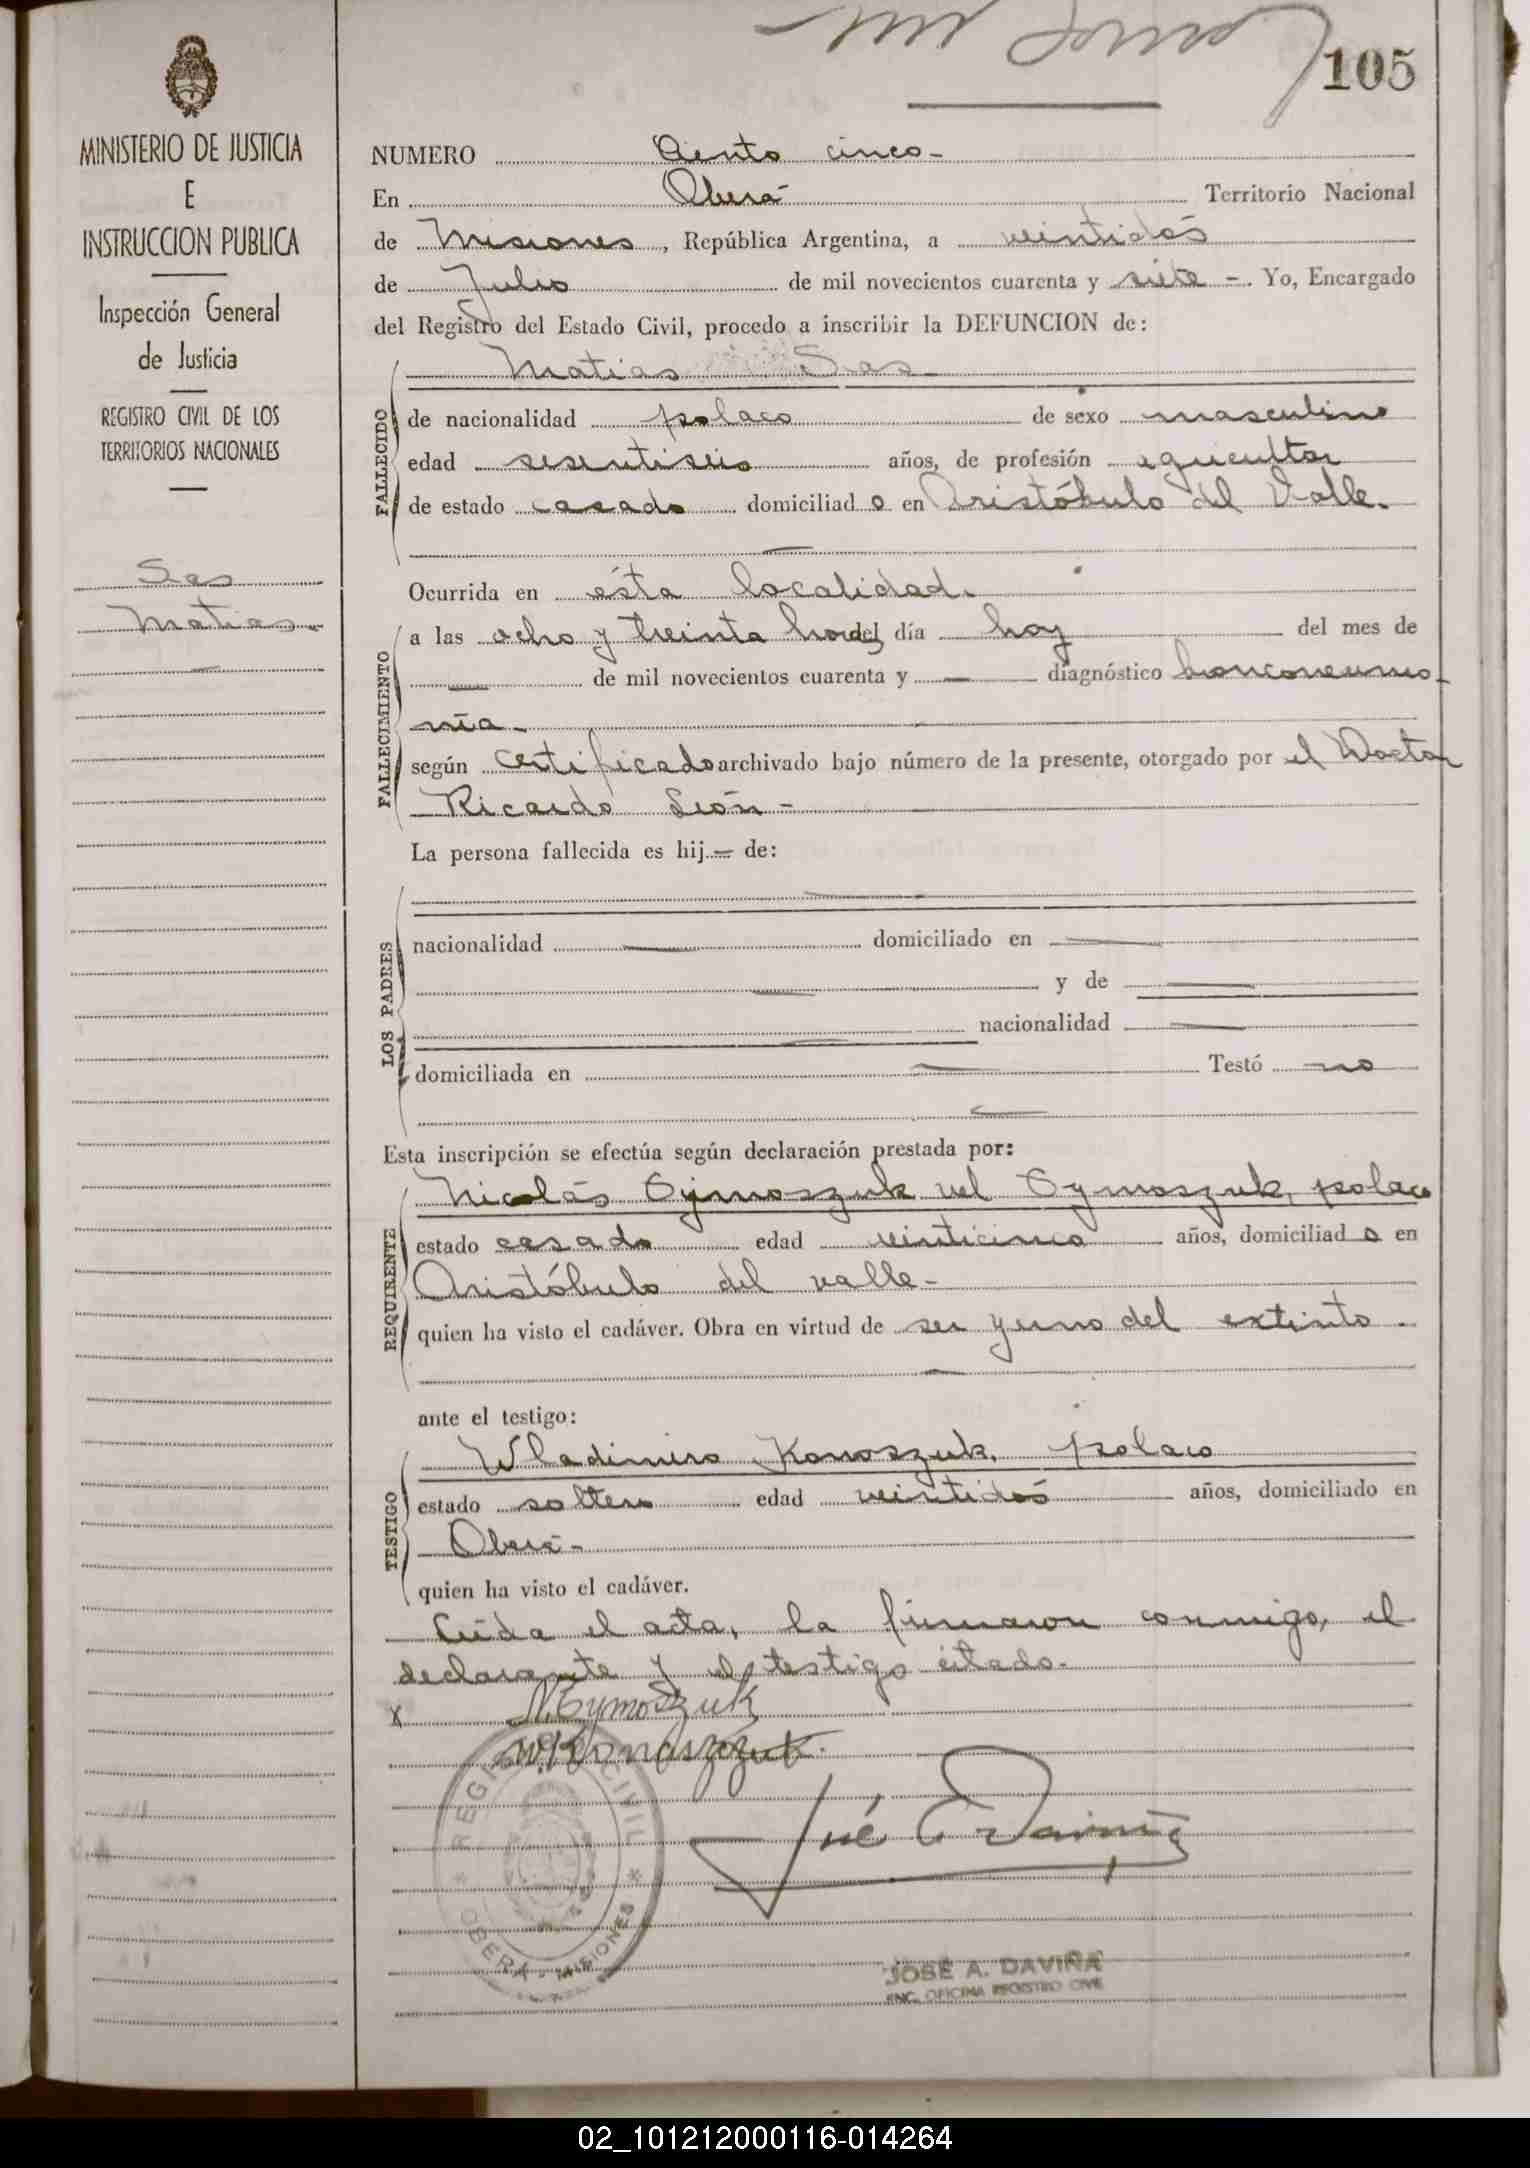 105
MINISTERIO DE JUSTICIA
E
INSTRUCCION PUBLICA
Inspección General
de Justicia
REGISTRO CIVIL DE LOS
TERRITORIOS NACIONALES
Sas
Matias.
NUMERO Ciento cinco-
En Oberá Territorio Nacional
de Misiones, República Argentina, a veintidós
de Julio de mil novecientos cuarenta y siete -. Yo, Encargado
del Registro del Estado Civil, procedo a inscribir la DEFUNCION de:
Matias Sas
FALLECIDO
de nacionalidad polaco de sexo masculino
edad sesentiseis años, de profesión agricultor
de estado casado domiciliad o en Aristóbulo del Valle.
Ocurrida en ésta localidad.
FALLECIMIENTO
a las ocho y treinta horas del día hoy del mes de
— de mil novecientos cuarenta y — diagnóstico bronconeumo-
nía-
según certificado archivado bajo número de la presente, otorgado por el Doctor
Ricardo León-
La persona fallecida es hij — de:
LOS PADRES
nacionalidad — domiciliado en —
— y de —
— nacionalidad —
domiciliada en — Testó no
Esta inscripción se efectúa según declaración prestada por:
REQUIRENTE
Nicolás Cymoszuk vel Tymoszuk, polaco
estado casado edad veinticinco años, domiciliad o en
Aristóbulo del valle-
quien ha visto el cadáver. Obra en virtud de ser yerno del extinto.
ante el testigo:
TESTIGO
Wladimiro Konoszuk, polaco
estado soltero edad veintidós años, domiciliado en
Oberá-
quien ha visto el cadáver.
Leída el acta, la firmaron conmigo, el
declarante y el testigo citado.
x N. Cymoszuk
W. Konaszczuk.
REGISTRO CIVIL
OBERA - MISIONES
JOSE A. DAVIÑA
ENC. OFICINA REGISTRO CIVIL
02_101212000116-014264